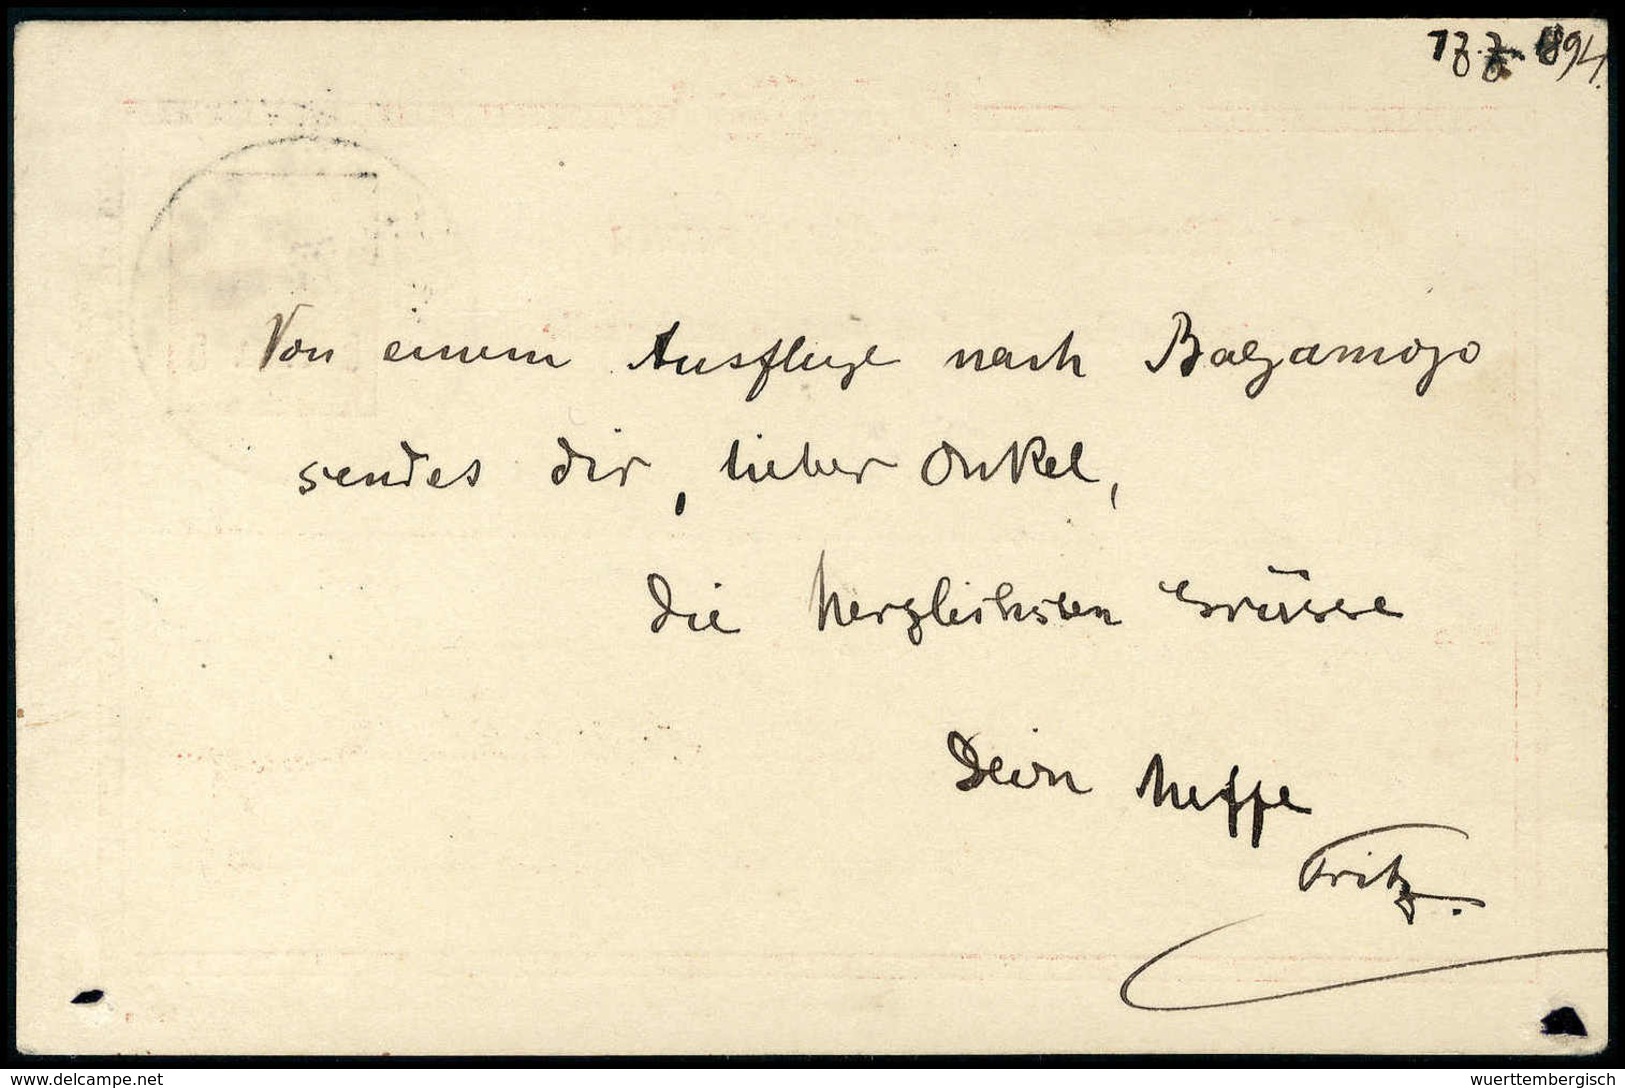 Von einem Ausfluge nach Bagamojo
sendet dir, lieber Onkel,
die herzlichsten Grüsse
Dein Neffe
Fritz.
© www.delcampe.net / wuerttembergisch